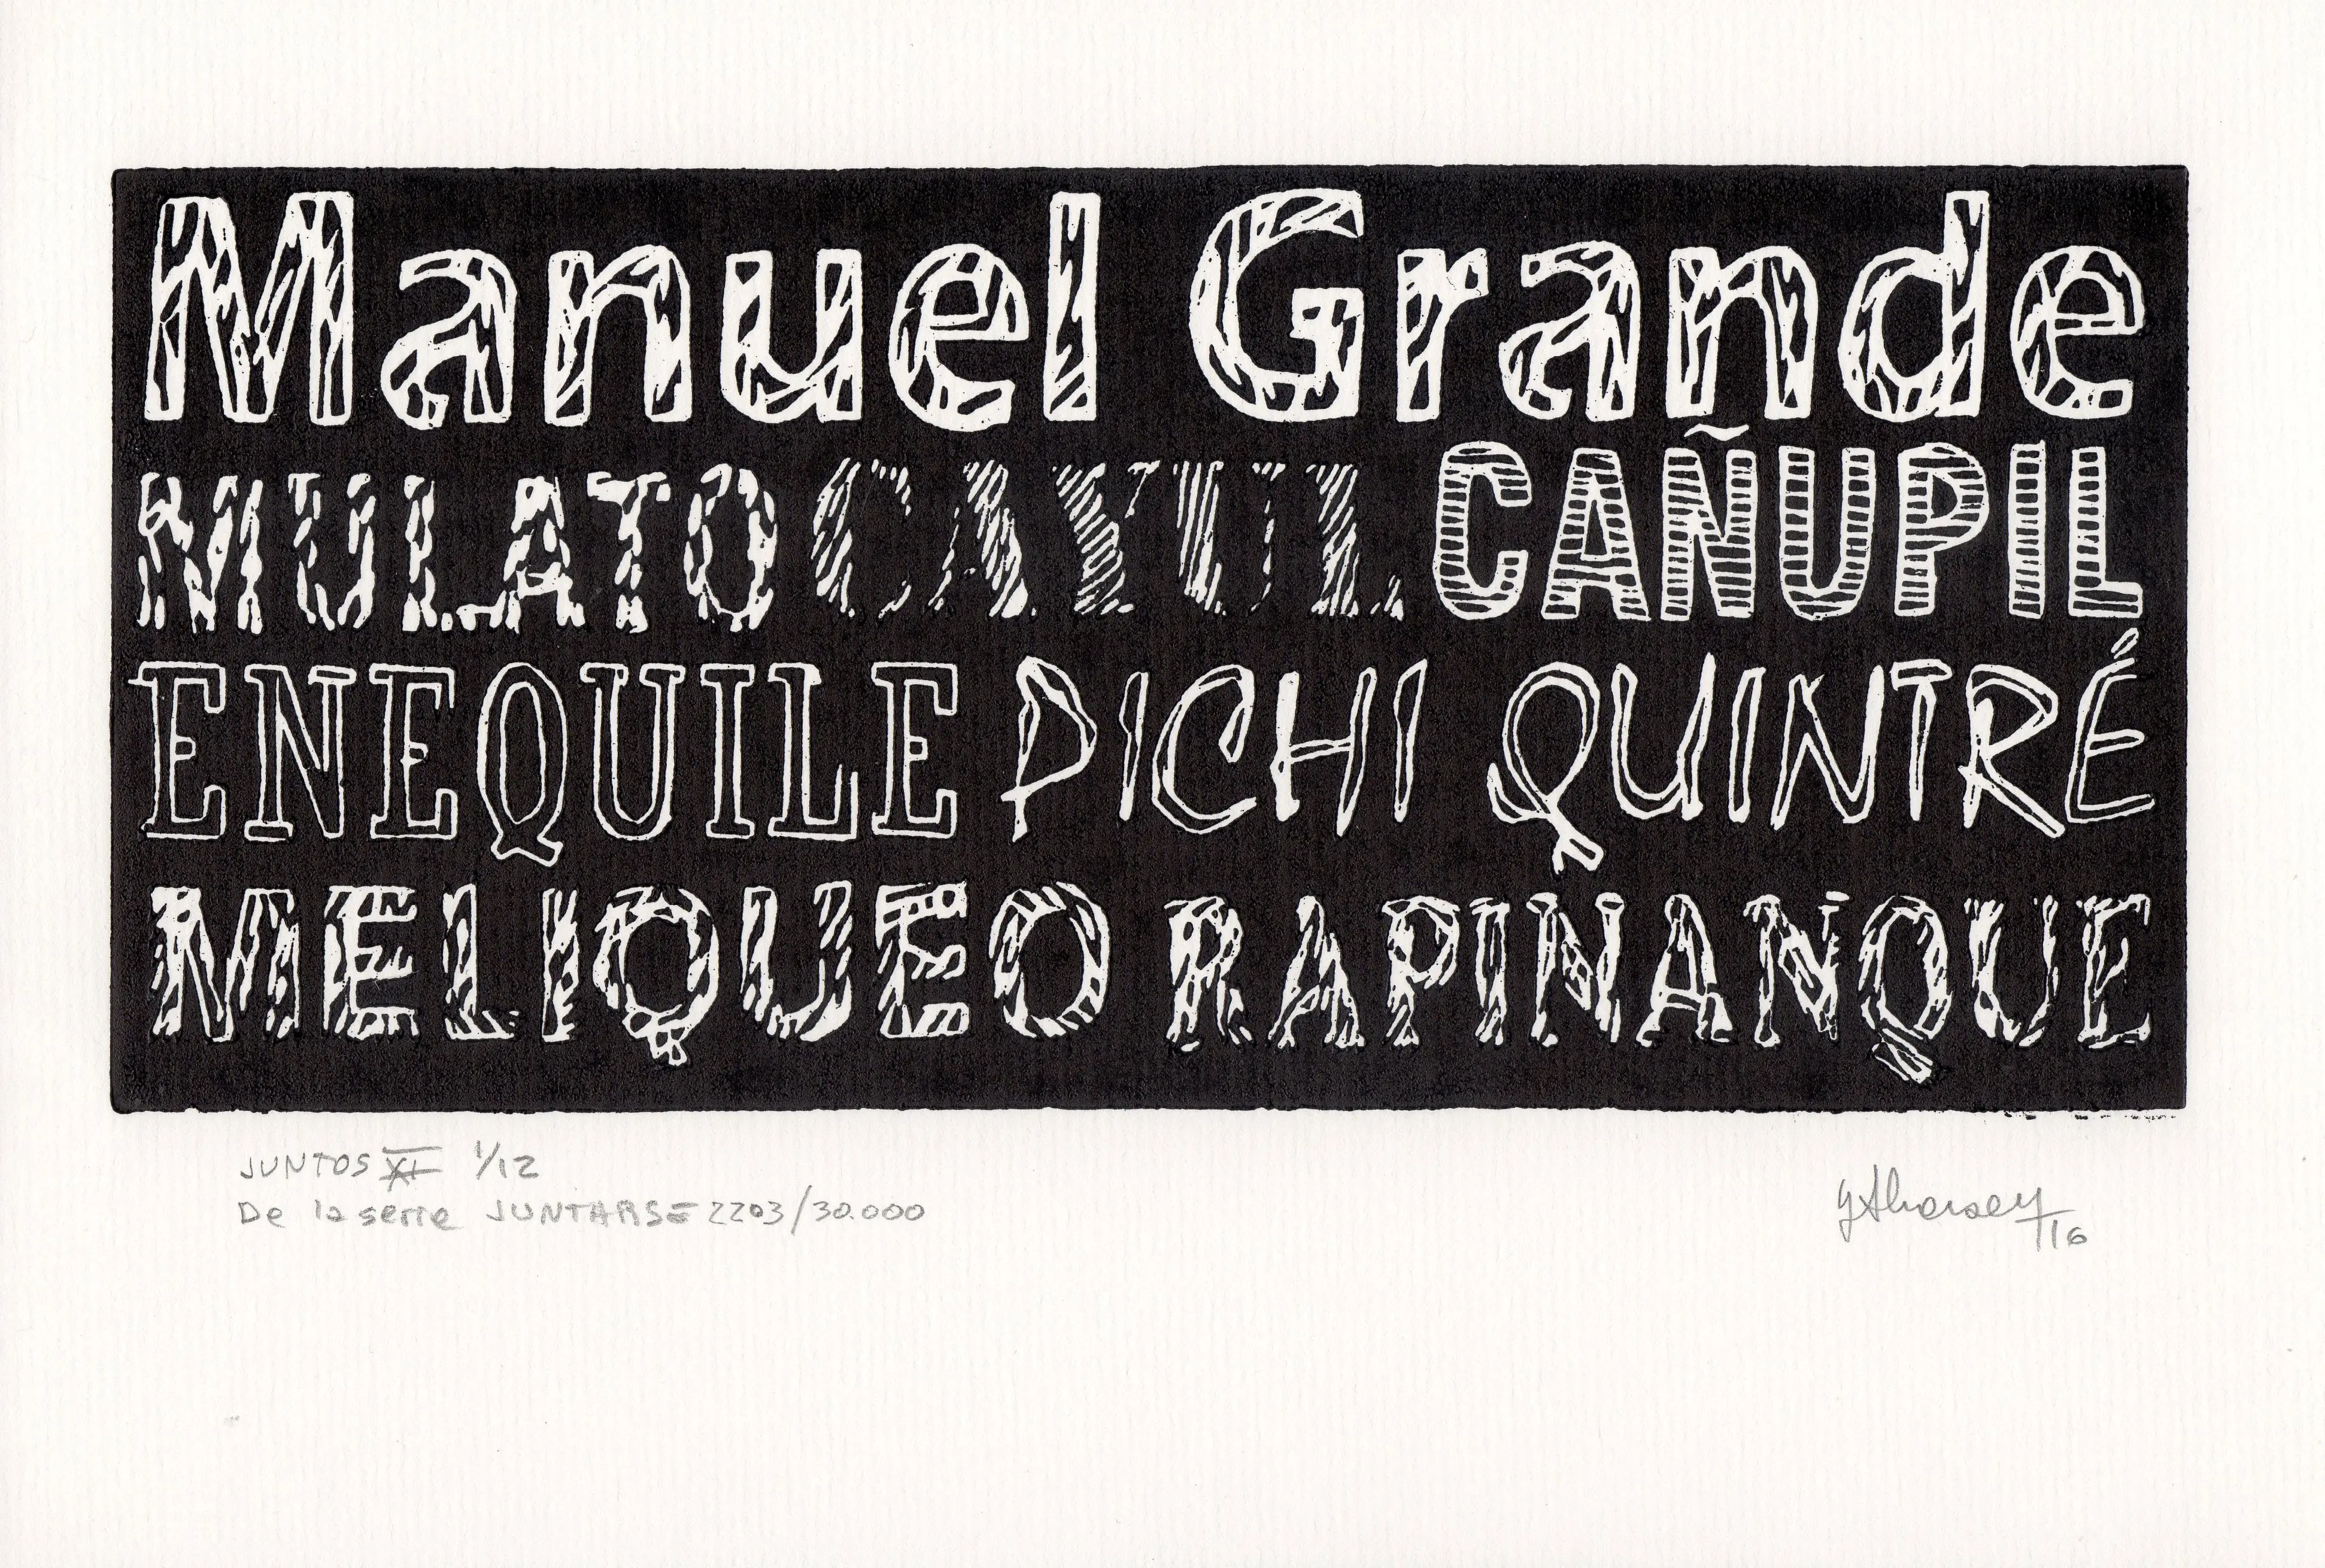 Manuel Grande
MULATO CAYUL CAÑUPIL
ENEQUILE PICHI QUINTRÉ
MELIQUEO RAPIÑANQUE
JUNTOS XI 1/12
De la serie JUNTARSE 2203/30.000
/16